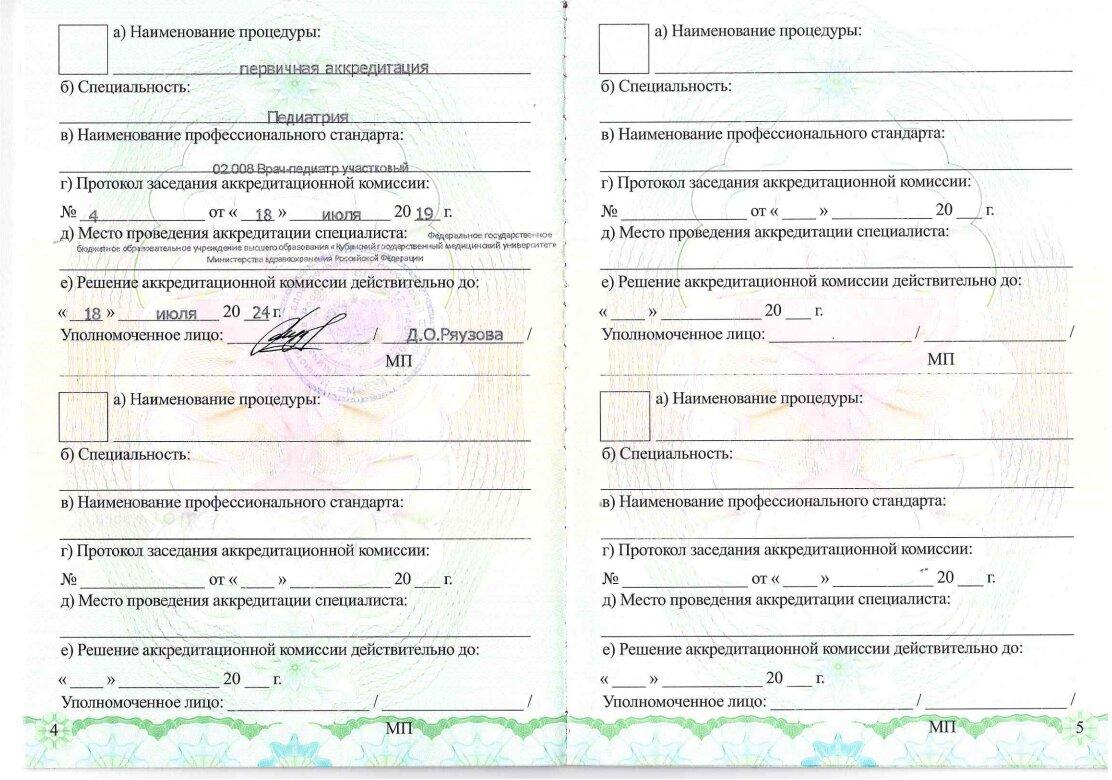 а) Наименование процедуры:
первичная аккредитация
б) Специальность:
Педиатрия
в) Наименование профессионального стандарта:
02.008 Врач-педиатр участковый
г) Протокол заседания аккредитационной комиссии:
№ 4 от « 18 » июля 20 19 г.
д) Место проведения аккредитации специалиста: Федеральное государственное
бюджетное образовательное учреждение высшего образования «Кубанский государственный медицинский университет»
Министерства здравоохранения Российской Федерации
е) Решение аккредитационной комиссии действительно до:
« 18 » июля 20 24 г.
Уполномоченное лицо: / Д.О.Ряузова /
МП
а) Наименование процедуры:
б) Специальность:
в) Наименование профессионального стандарта:
г) Протокол заседания аккредитационной комиссии:
№ ____ от « ____ » ____ 20 ___ г.
д) Место проведения аккредитации специалиста:
е) Решение аккредитационной комиссии действительно до:
« ____ » ____ 20 ___ г.
Уполномоченное лицо: ____ / ____ /
МП
4
а) Наименование процедуры:
б) Специальность:
в) Наименование профессионального стандарта:
г) Протокол заседания аккредитационной комиссии:
№ ____ от « ____ » ____ 20 ___ г.
д) Место проведения аккредитации специалиста:
е) Решение аккредитационной комиссии действительно до:
« ____ » ____ 20 ___ г.
Уполномоченное лицо: ____ / ____ /
МП
а) Наименование процедуры:
б) Специальность:
в) Наименование профессионального стандарта:
г) Протокол заседания аккредитационной комиссии:
№ ____ от « ____ » ____ 20 ___ г.
д) Место проведения аккредитации специалиста:
е) Решение аккредитационной комиссии действительно до:
« ____ » ____ 20 ___ г.
Уполномоченное лицо: ____ / ____ /
МП
5